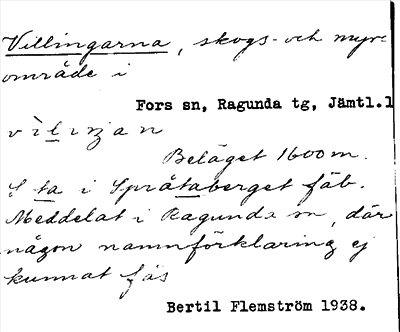 Villingarna, skogs- och myr-
område i
Fors sn, Ragunda tg, Jämtl.l
Beläget 1600 m.
S ta i Språtaberget fäb.
Meddelat i Ragunda sn, där
någon namnförklaring ej
kunnat fås
Bertil Flemström 1938.